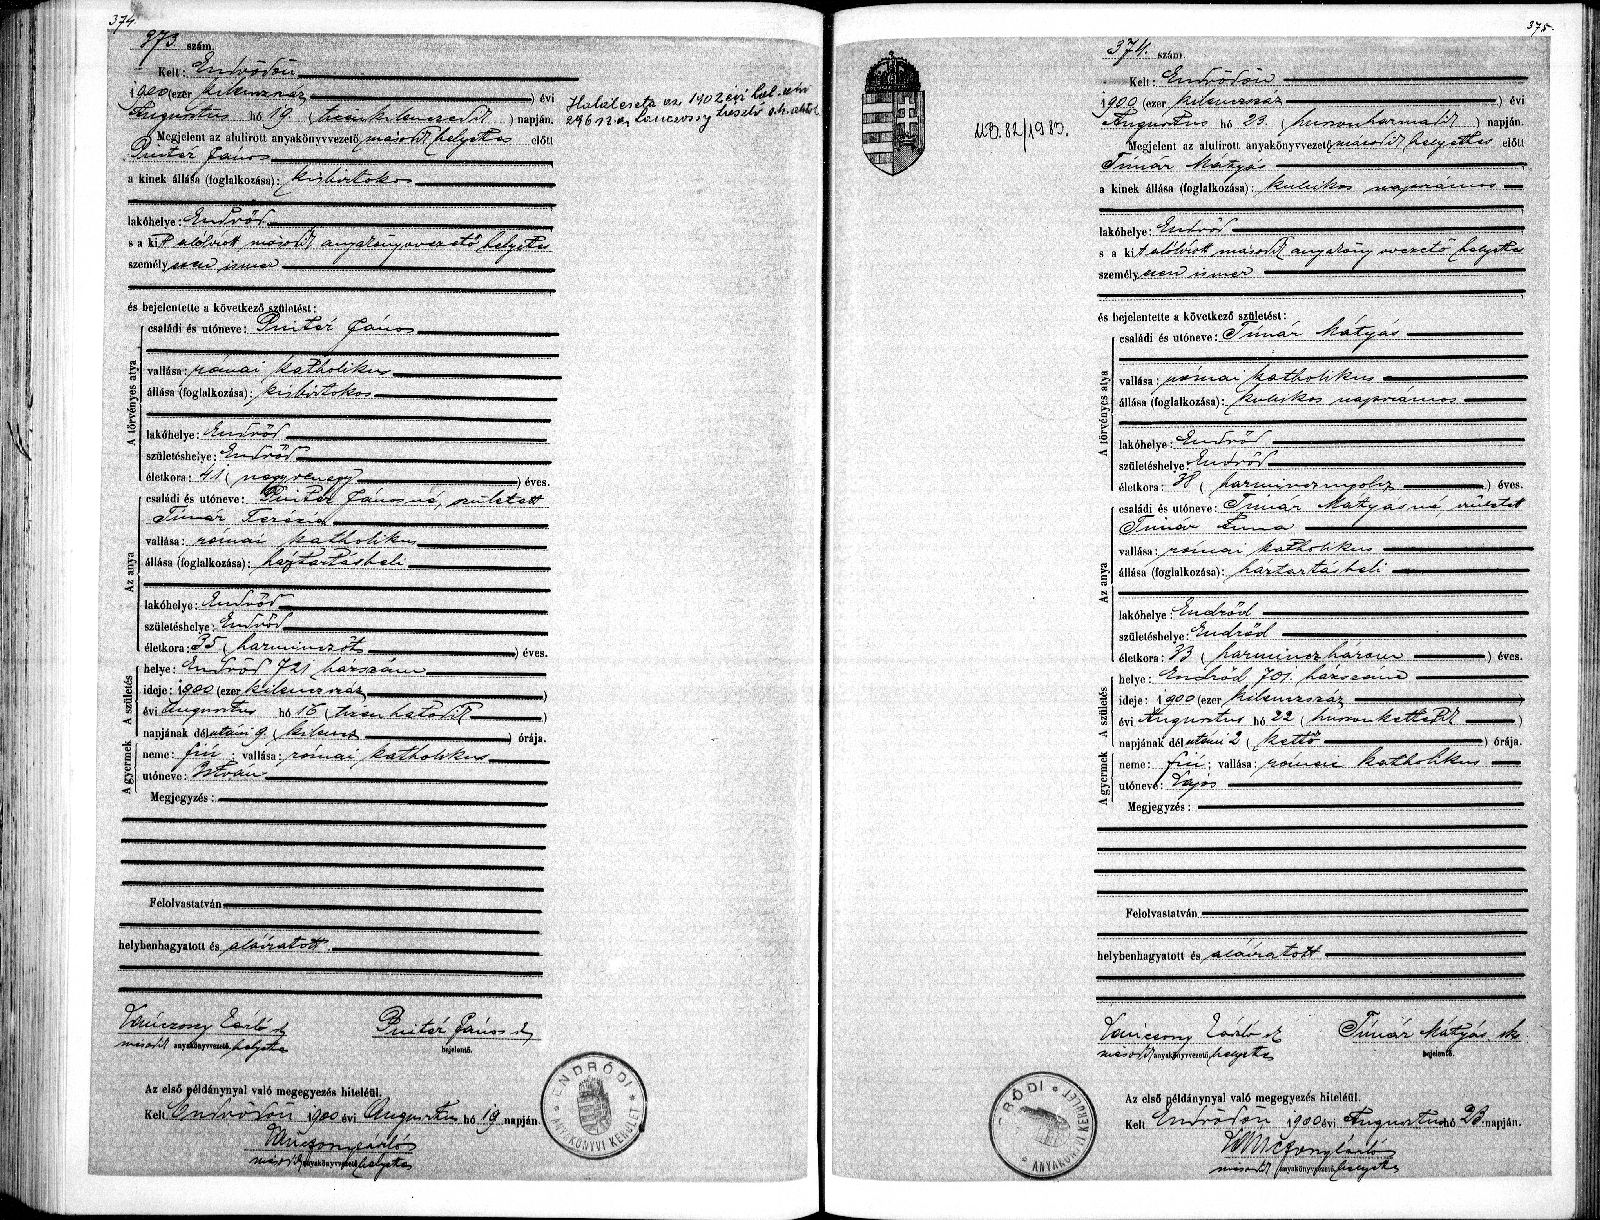 374.
373 szám.
Kelt: Endrődön
1900 (ezer kilenczszáz) évi
Augusztus hó 19. (tizenkilenczedik) napján.
Megjelent az alulirott anyakönyvvezető másodk helyettes előtt
Pintér János
a kinek állása (foglalkozása): kisbirtokos
lakóhelye: Endrőd
s a kit alólírott másodk anyakönyvvezető helyettes
személyesen ismer
és bejelentette a következő születést:
A törvényes atya
családi és utóneve: Pintér János
vallása: római katholikus
állása (foglalkozása): kisbirtokos
lakóhelye: Endrőd
születéshelye: Endrőd
életkora: 41 (negyvenegy) éves.
Az anya
családi és utóneve: Pintér Jánosné, született
Timár Terézia
vallása: római katholikus
állása (foglalkozása): háztartásbeli
lakóhelye: Endrőd
születéshelye: Endrőd
életkora: 35 (harminczöt) éves.
A születés
helye: Endrőd 721 házszám
ideje: 1900 (ezer kilenczszáz)
évi Augusztus hó 16 (tizenhatodik)
napjának délutáni 9 (kilencz) órája.
A gyermek
neme: fiú; vallása: római katholikus
utóneve: István
Megjegyzés:
Felolvastatván
helybenhagyatott és aláíratott
másodk anyakönyvvezető helyettes
Pintér János
bejelentő.
Az első példánynyal való megegyezés hiteléül.
Kelt Endrődön 1900 évi Augusztus hó 19 napján
másodk anyakönyvvezető helyettes
ENDRŐDI
ANYAKÖNYVI KERÜLET
Halálesete az 1902 évi hal.
296 sz. a.
375.
374. szám
MB. 82/1983.
Kelt: Endrődön
1900 (ezer kilenczszáz) évi
Augusztus hó 23. (huszonharmadik) napján.
Megjelent az alulirott anyakönyvvezető másodk helyettes előtt
Timár Mátyás
a kinek állása (foglalkozása): kubikos napszámos
lakóhelye: Endrőd
s a kit alólírott másodk anyakönyvvezető helyettes
személyesen ismer
és bejelentette a következő születést:
A törvényes atya
családi és utóneve: Timár Mátyás
vallása: római katholikus
állása (foglalkozása): kubikos napszámos
lakóhelye: Endrőd
születéshelye: Endrőd
életkora: 38 (harmincznyolcz) éves.
Az anya
családi és utóneve: Timár Mátyásné, született
Timár Anna
vallása: római katholikus
állása (foglalkozása): háztartásbeli
lakóhelye: Endrőd
születéshelye: Endrőd
életkora: 33 (harminczhárom) éves.
A születés
helye: Endrőd 701 házszám
ideje: 1900 (ezer kilenczszáz
évi Augusztus hó 22 (huszonkettedik)
napjának délutáni 2 (kettő) órája.
A gyermek
neme: fiú; vallása: római katholikus
utóneve: Lajos
Megjegyzés:
Felolvastatván
helybenhagyatott és aláíratott
másodk anyakönyvvezető helyettes
Timár Mátyás sk
bejelentő.
Az első példánynyal való megegyezés hiteléül.
Kelt Endrődön 1900 évi Augusztus hó 23 napján.
másodk anyakönyvvezető helyettes
RŐDI
ANYAKÖNYVI KERÜLET